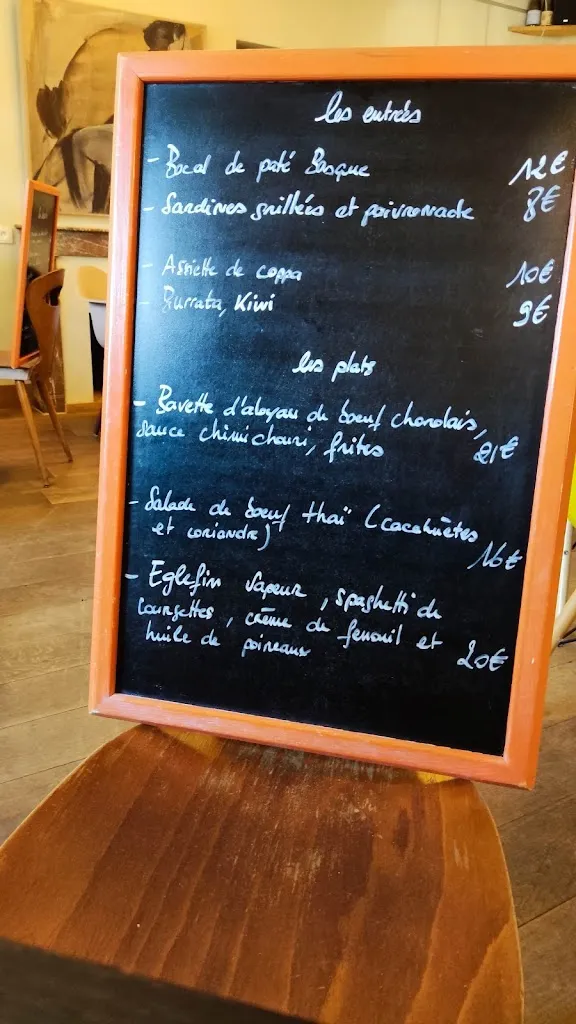 les entrées
- Bocal de paté Basque 12€
- Sardines grillées et poivronade 8€
- Assiette de coppa 10€
- Burrata, Kiwi 9€
les plats
- Bavette d'aloyau de boeuf charolais,
sauce chimichouri, frites 21€
- Salade de boeuf thaï (cacahuètes
et coriandre) 16€
- Eglefin vapeur, spaghetti de
courgettes, crème de fenouil et
huile de poireaux 20€